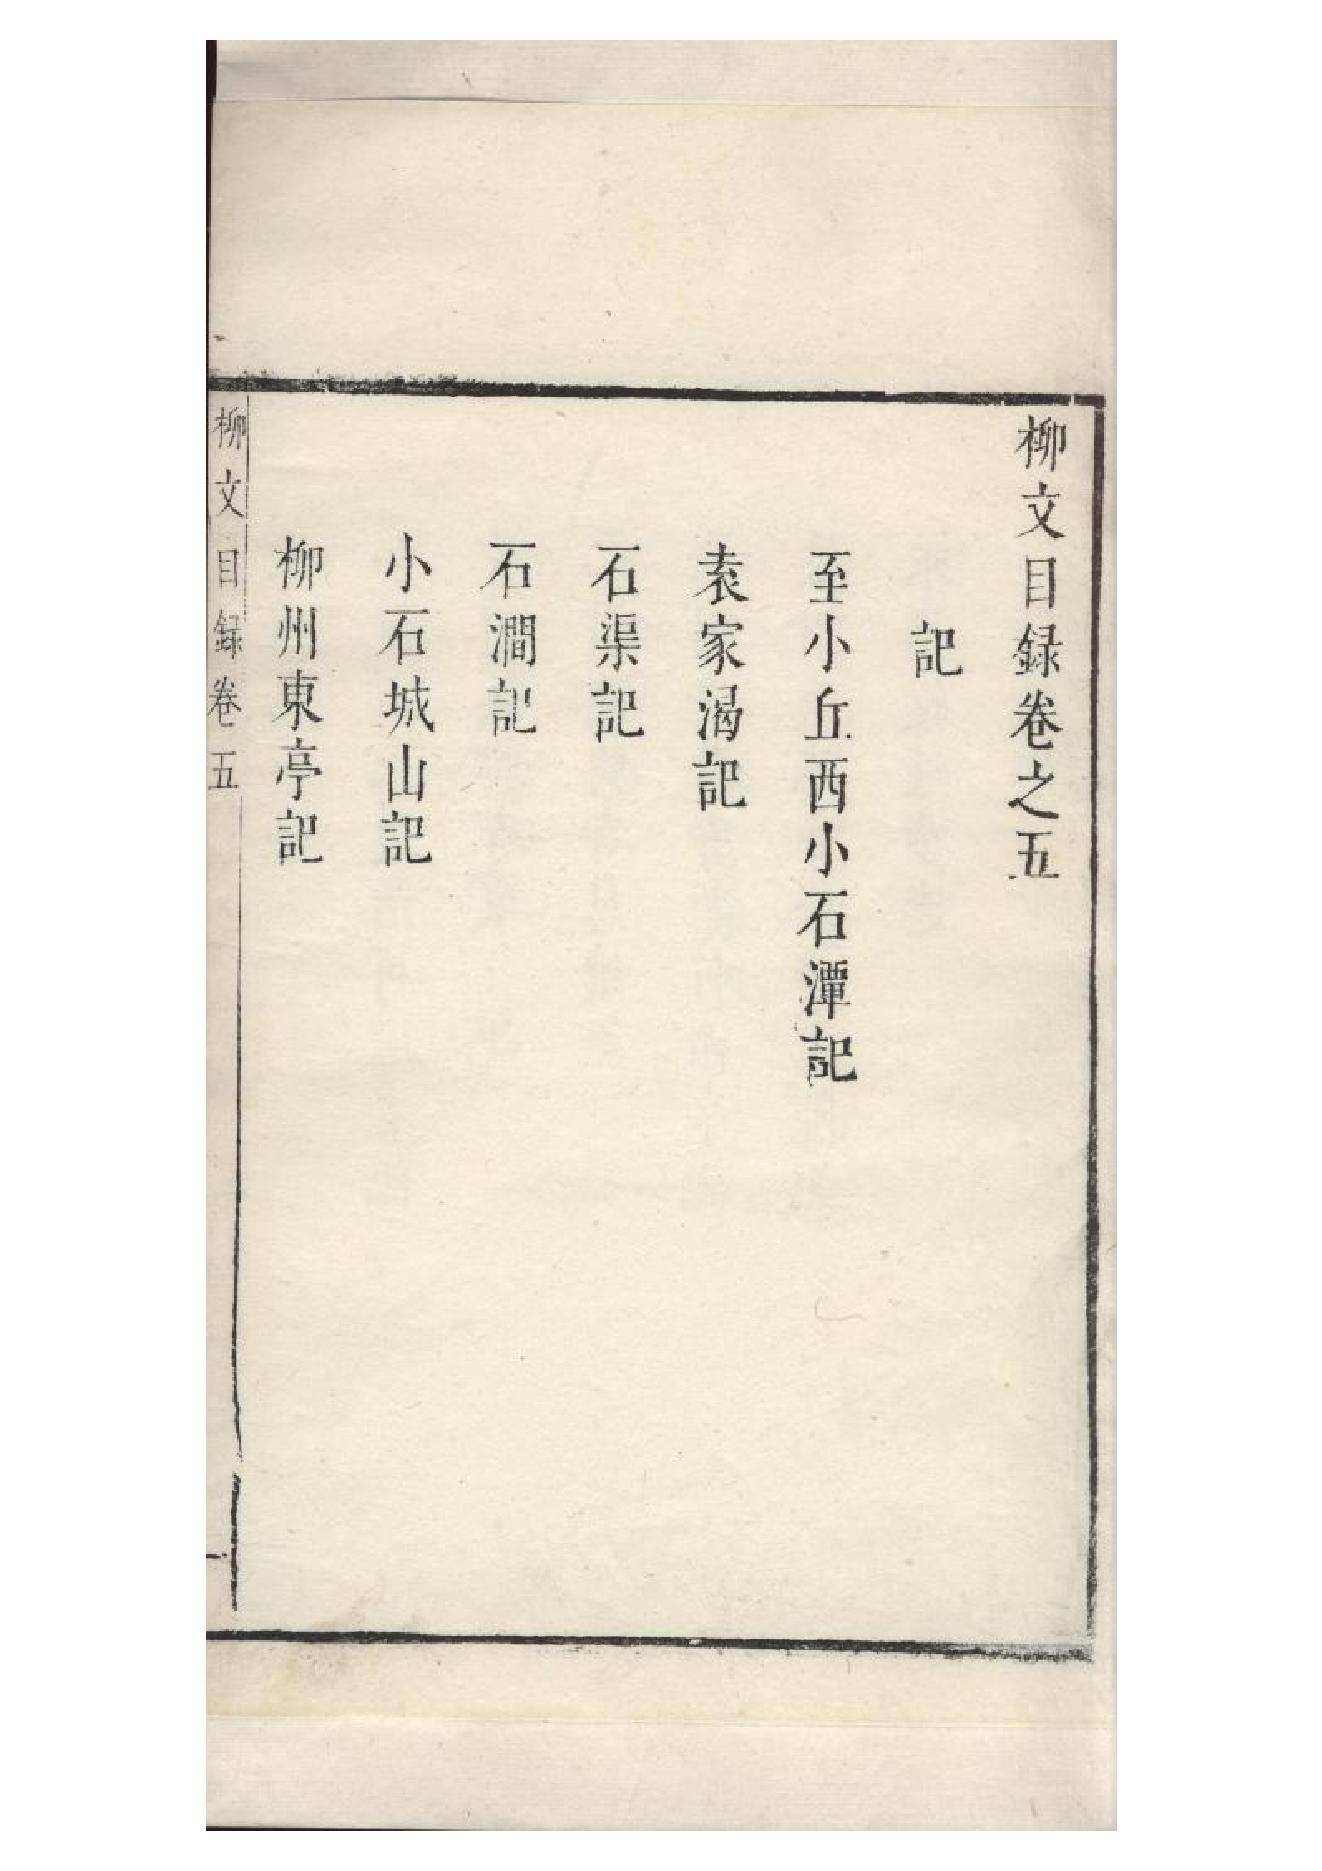 柳文目録卷之五
記
至小丘西小石潭記
袁家渴記
石渠記
石澗記
小石城山記
柳州東亭記
柳文目録卷五
一